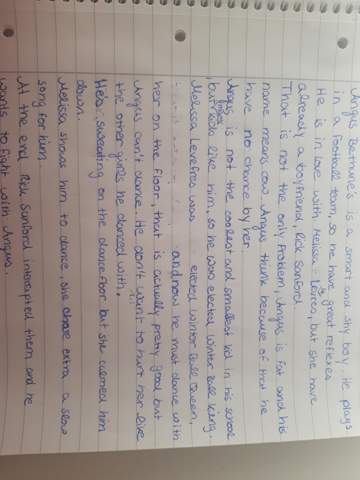 Angus Bethune's is a smart and shy boy. He plays
in a Football team, so he have great reflexes
He is in love with Melissa Lefevres, but she have
already a boyfriend, Rick Sanford
That is not the only Problem, Angus is Fat and his
name means cow. Angus think because of that he
have no chance by her
Angus is not the coolest and smallest kid in his school
, but kids like him, so he was elected winter Ball King.
Melissa Levefres was elected Winter Ball Queen,
and now he must dance with
her on the floor, that is actually pretty good but
Angus can't dance. He don't want to hurt her like
the other girls he danced with.
He's sweating on the dancefloor but she calmed him
down.
Melissa shows him to dance, she chose extra a slow
song for him.
At the end Rick Sanford intercepted them and he
wants to fight with Angus.